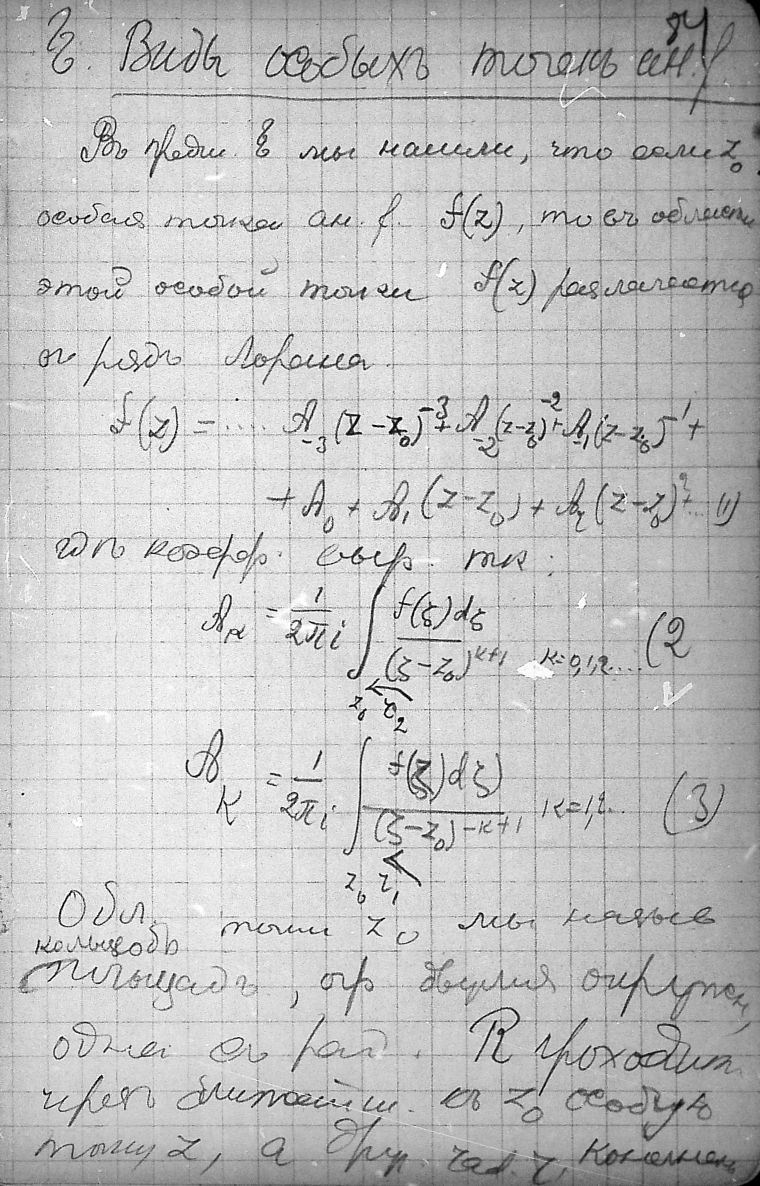 84
§. Виды особыхъ точекъ ан. f.
Въ пред. § мы нашли, что если z₀
особая точка ан. f. f(z), то въ области
этой особой точки f(z) разлагается
въ рядъ Лорана.
f(z) = .... A₋₃(z−z₀)⁻³ + A₋₂(z−z₀)⁻² + A₋₁(z−z₀)⁻¹ +
+ A₀ + A₁(z−z₀) + A₂(z−z₀)² + ... (1)
гдѣ коэфф. выр. тк:
Aₖ = 1/2πi ∫ f(ξ)dξ/(ξ−z₀)ᵏ⁺¹ k=0,1,2.... (2
z₀ r₂
Aₖ = 1/2πi ∫ f(ξ)dξ/(ξ−z₀)⁻ᵏ⁺¹ k=1,2... (3)
z₀ r₁
Обл. точки z₀ мы назыв
кольцообр
площадь, огр двумя окружн,
одна съ рад. R проходит
черезъ ближайш. къ z₀ особую
точку z, а друг. рад. r,